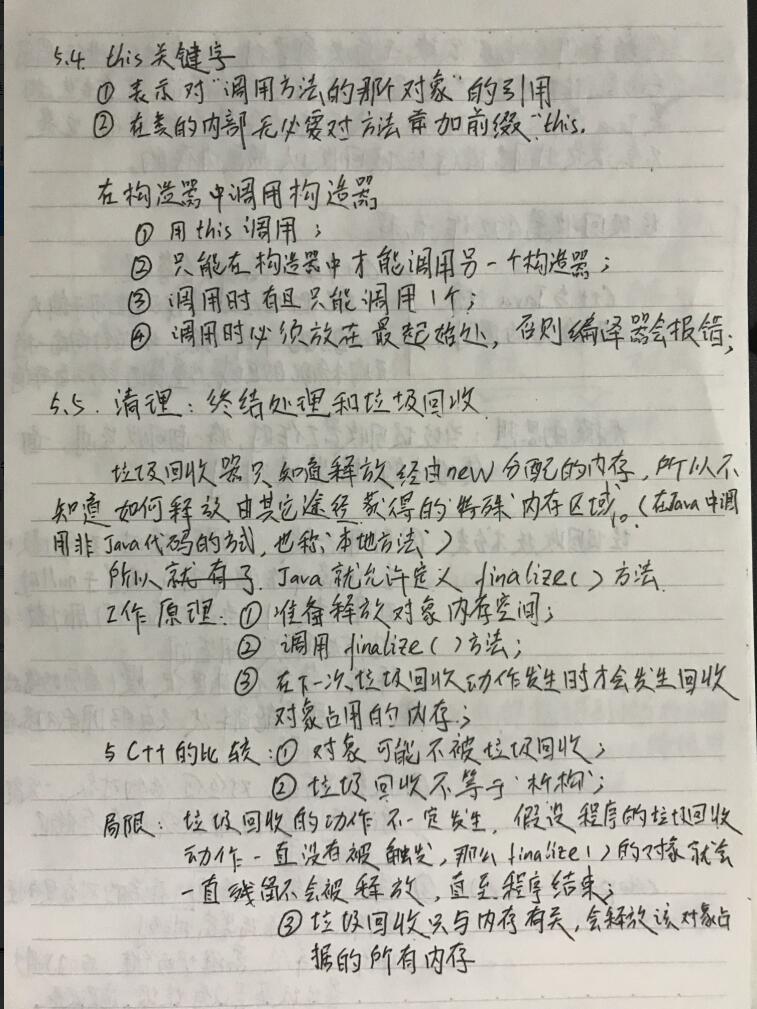 5.4. this关键字
① 表示对"调用方法的那个对象"的引用
② 在类的内部无必要对方法前加前缀"this.
在构造器中调用构造器
① 用this调用；
② 只能在构造器中才能调用另一个构造器；
③ 调用时有且只能调用1个；
④ 调用时必须放在最起始处，否则编译器会报错；
5.5. 清理：终结处理和垃圾回收
垃圾回收器只知道释放经由new分配的内存，所以不
知道如何释放由其它途径获得的'特殊'内存区域。(在Java中调
用非Java代码的方式，也称'本地方法')
所以就有了 Java就允许定义 finalize()方法
工作原理：① 准备释放对象内存空间；
② 调用 finalize()方法；
③ 在下一次垃圾回收动作发生时才会发生回收
对象占用的内存；
与C++的比较：① 对象可能不被垃圾回收；
② 垃圾回收不等于'析构'；
局限：垃圾回收的动作不一定发生，假设程序的垃圾回收
动作一直没有被触发，那么finalize()的对象就会
一直残留不会被释放，直至程序结束；
③ 垃圾回收只与内存有关，会释放该对象占
据的所有内存